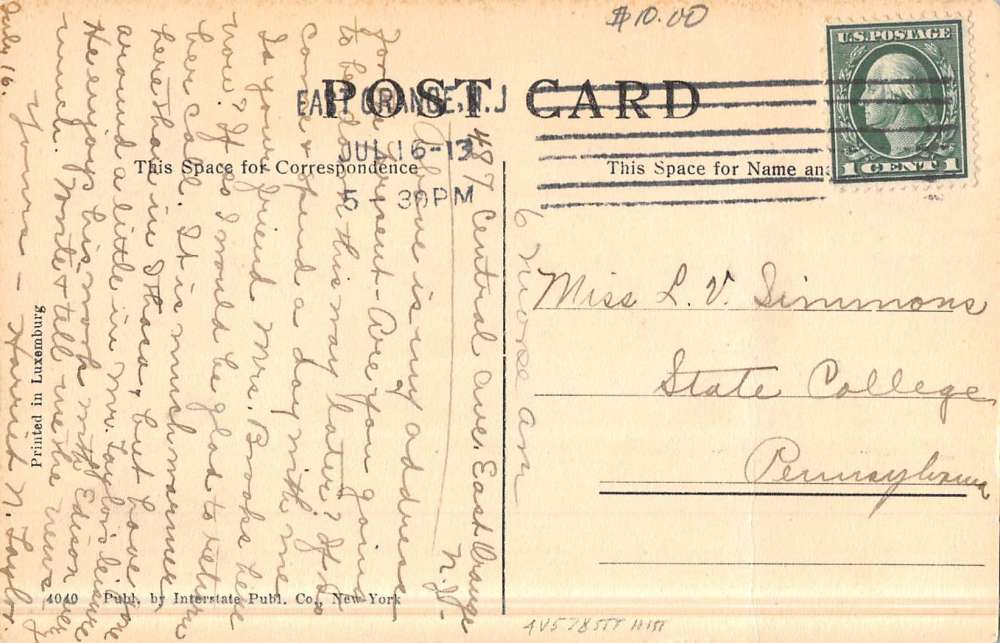 $10.00
U.S. POSTAGE
1 CENT 1
POST CARD
EAST ORANGE, N.J
JUL 16-13
5 30 PM
This Space for Correspondence
This Space for Name an
487 Central Ave. East Orange
N.J.
Above is my address
for present- Are you going
to be down this way later? If so
come & spend a day with me.
Is your friend Mrs. Brooks here
now? If so I would be glad to return
her call. It is much warmer
here than in Ithaca, but have gone
around a little in Mr. Taylor's leisure
He enjoys his work with Edison very
much. Write & tell me the news
Yours - Harriet N. Taylor.
July 16.
Miss L. V. Simmons
State College,
Pennsylvania
Printed in Luxemburg
4040 Publ. by Interstate Publ. Co., New York